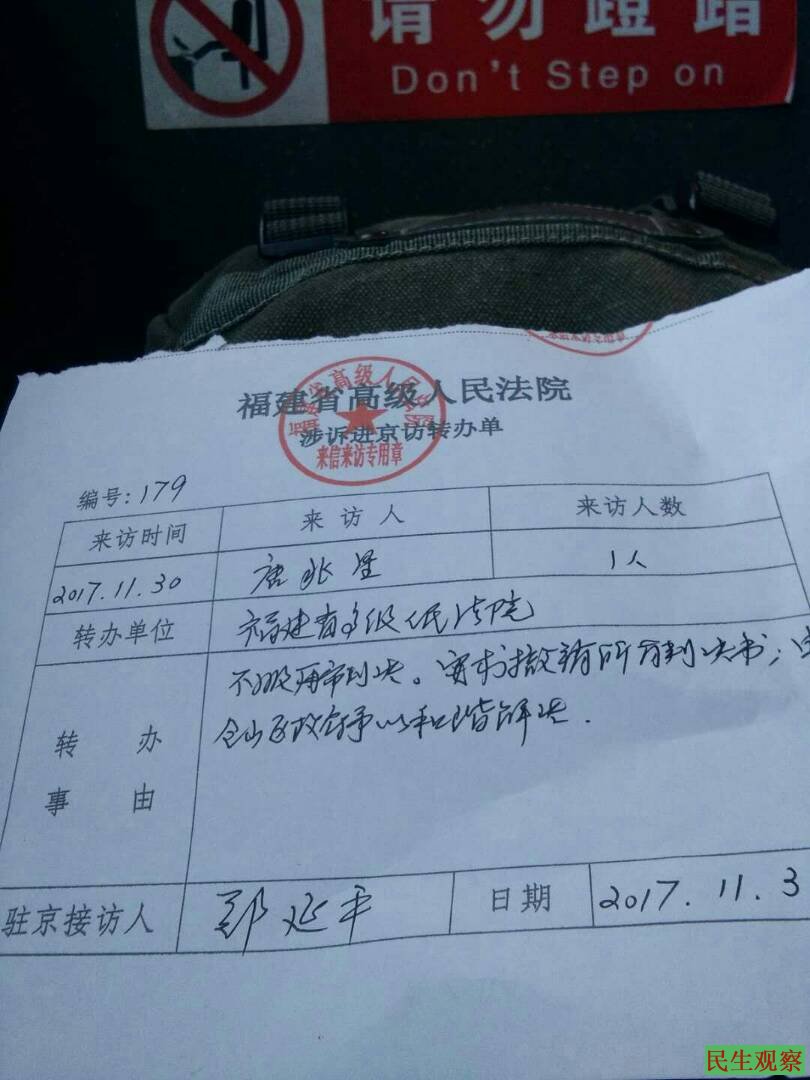 请勿蹬踏
Don't Step on
福建省高级人民法院
涉诉进京访转办单
福建省高级人民法院
来信来访专用章
编号：179
来访时间 来访人 来访人数
2017.11.30 唐兆星 1人
转办单位 福建省高级人民法院
转办事由
不服再审判决。要求撤销所有判决书；由
仓山区政府予以和谐解决．
驻京接访人 郑延平 日期 2017.11.3
民生观察